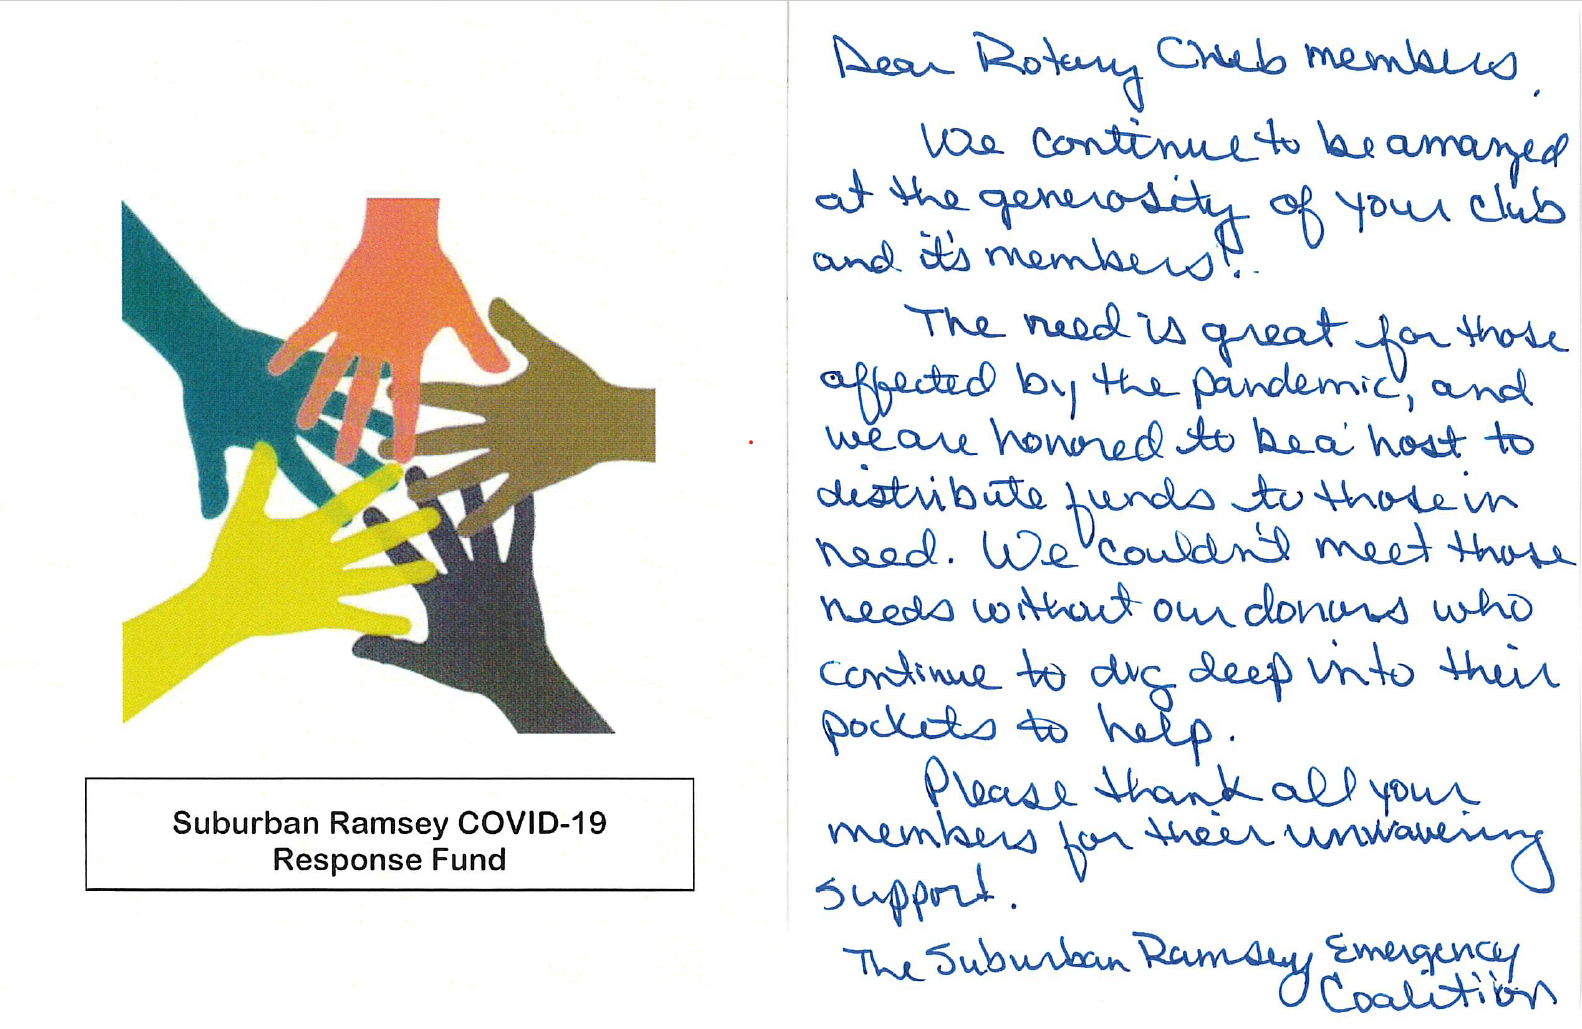 Suburban Ramsey COVID-19
Response Fund
Dear Rotary Club members,
We continue to be amazed
at the generosity of your club
and it's members!
The need is great for those
affected by the pandemic, and
we are honored to be a host to
distribute funds to those in
need. We couldn't meet those
needs without our donors who
continue to dig deep into their
pockets to help.
Please thank all your
members for their unwavering
support.
The Suburban Ramsey Emergency
Coalition